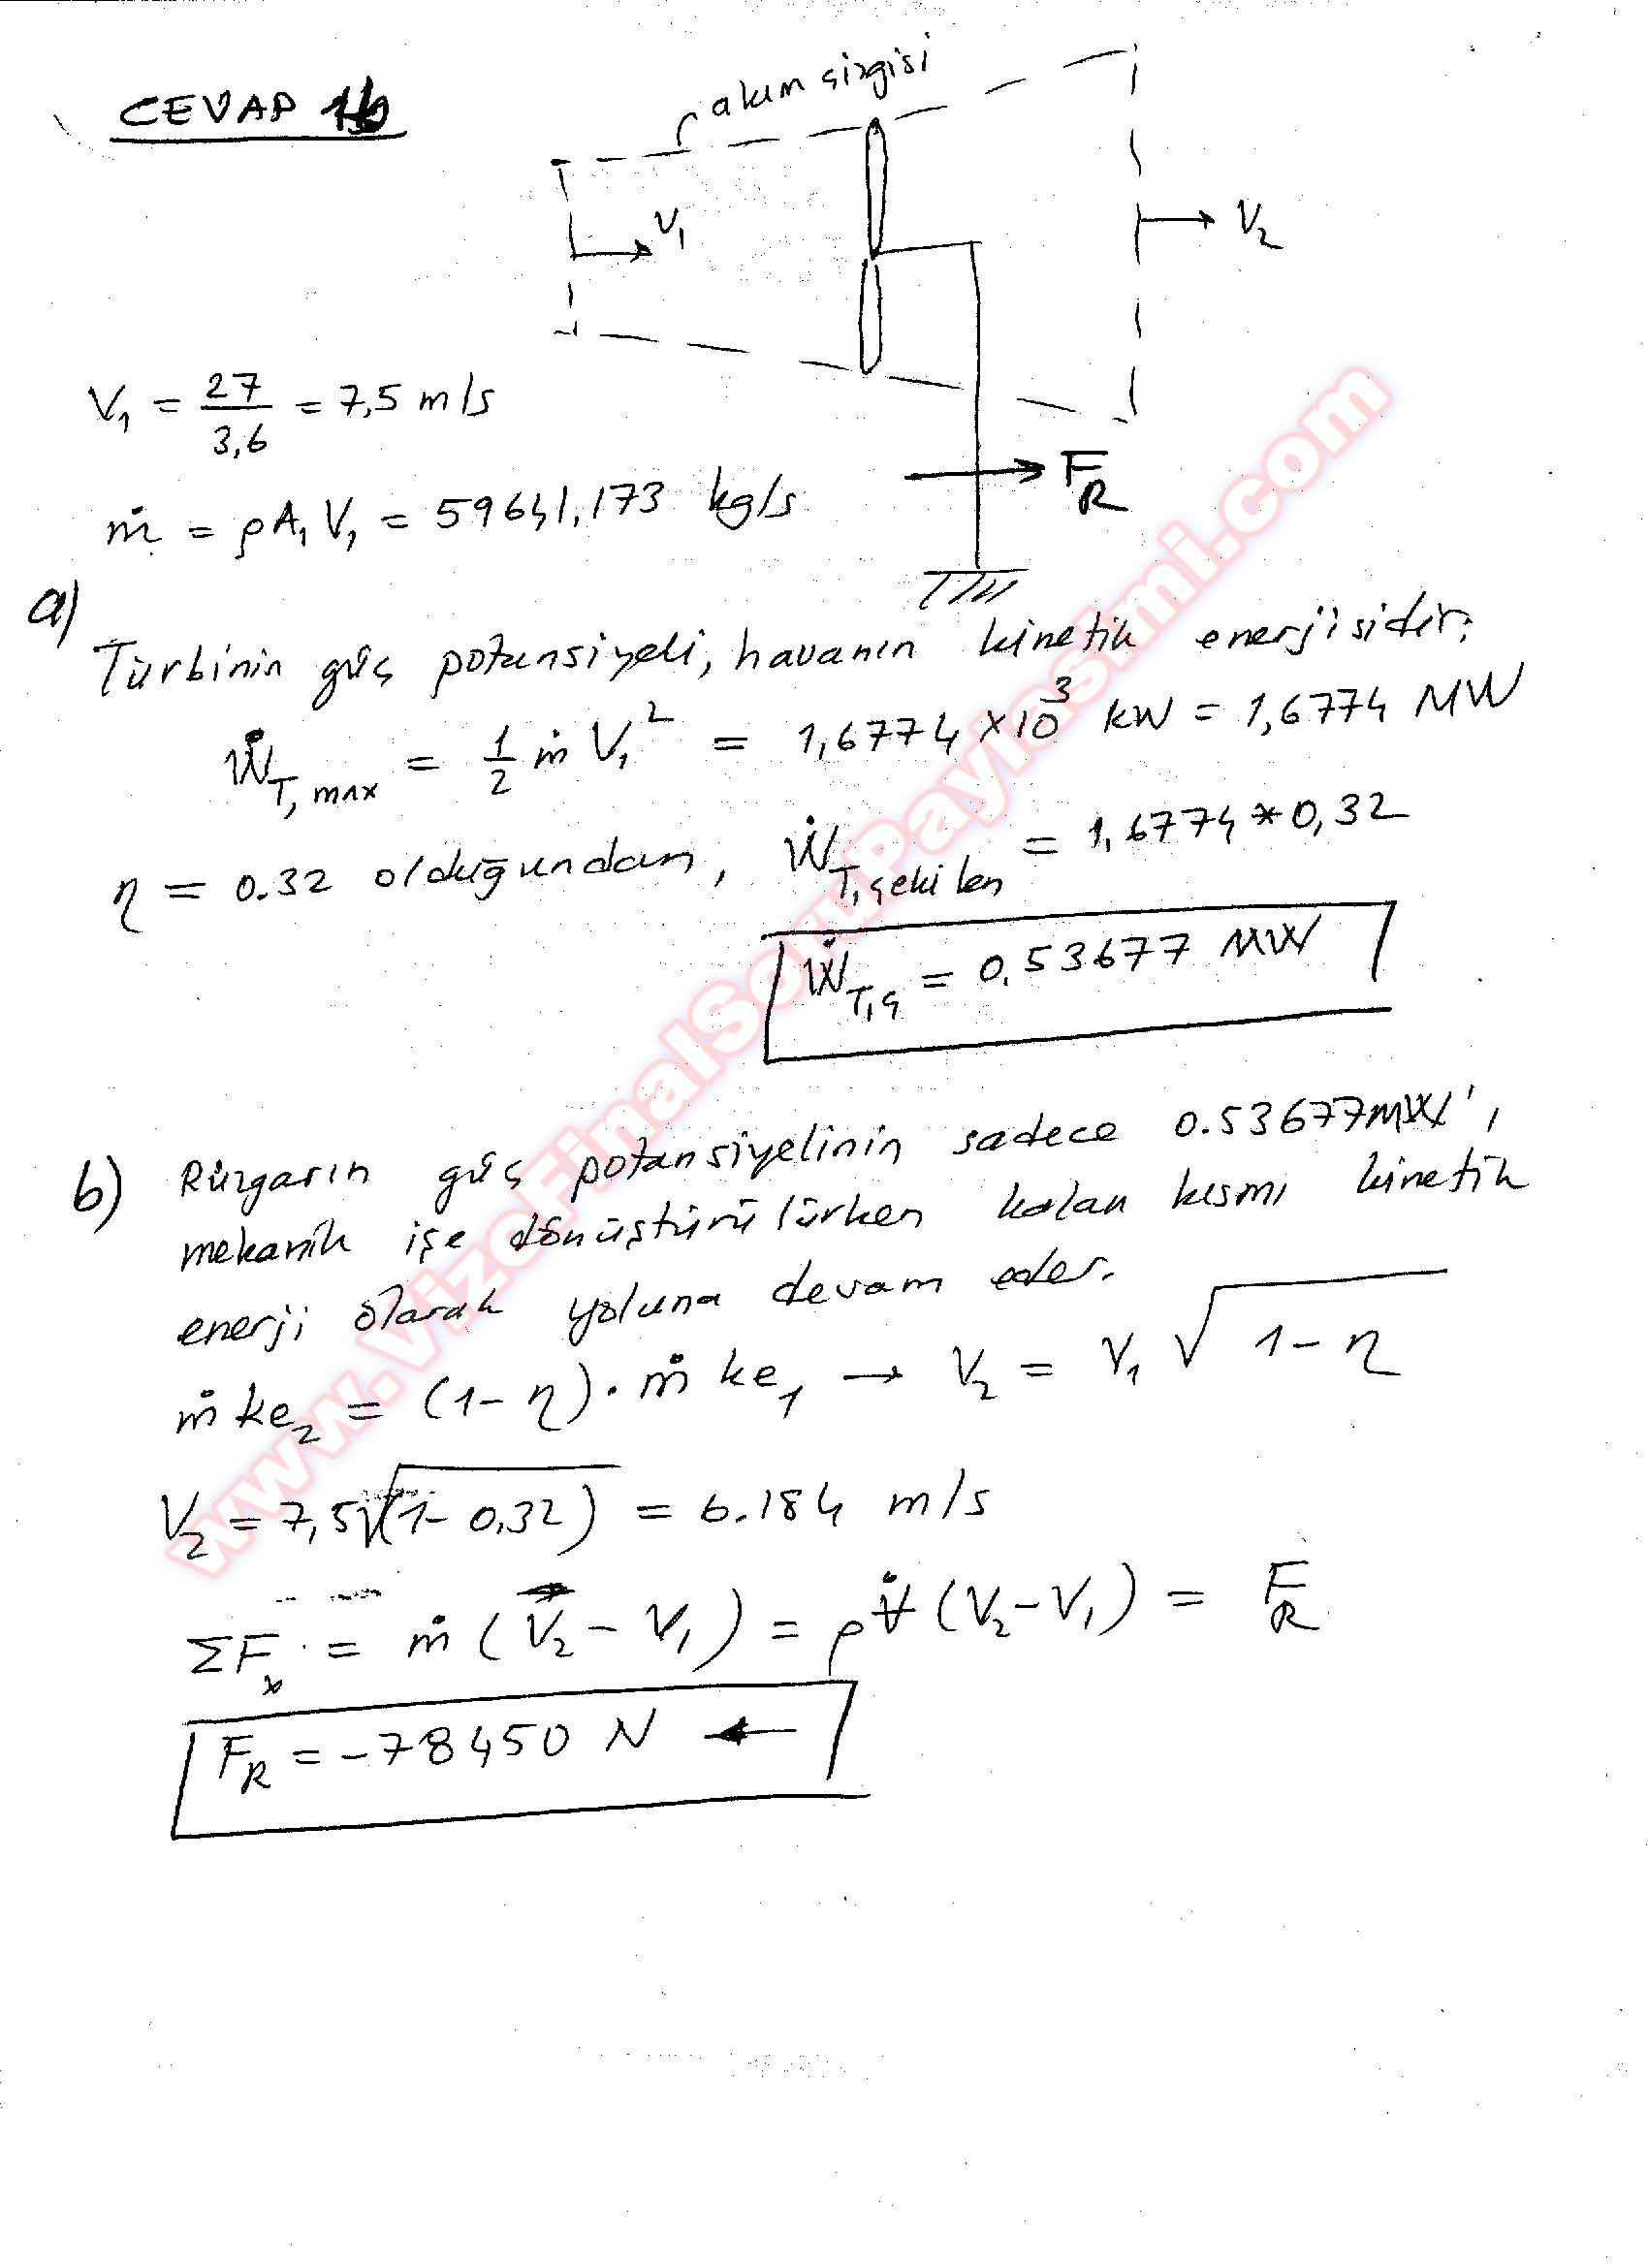 CEVAP 1b
akım çizgisi
V₁
V₂
V₁ = 27/3,6 = 7,5 m/s
F_R
ṁ = ρA₁V₁ = 59641,173 kg/s
a)
Türbinin güç potansiyeli, havanın kinetik enerjisidir:
Ẇ_T,max = 1/2 ṁ V₁² = 1,6774 × 10³ kW = 1,6774 MW
η = 0.32 olduğundan, Ẇ_T,çekilen = 1,6774 * 0,32
Ẇ_T,ç = 0.53677 MW
b) Rüzgarın güç potansiyelinin sadece 0.53677MW'ı
mekanik işe dönüştürülürken kalan kısmı kinetik
enerji olarak yoluna devam eder.
ṁ ke₂ = (1-η) . ṁ ke₁ → V₂ = V₁ √(1-η)
V₂ = 7,5√(1-0,32) = 6.184 m/s
ΣF_x = ṁ (V₂ - V₁) = ρV̶̇ (V₂-V₁) = F_R
F_R = -78450 N ←
www.VizeFinalSoruPaylasimi.com